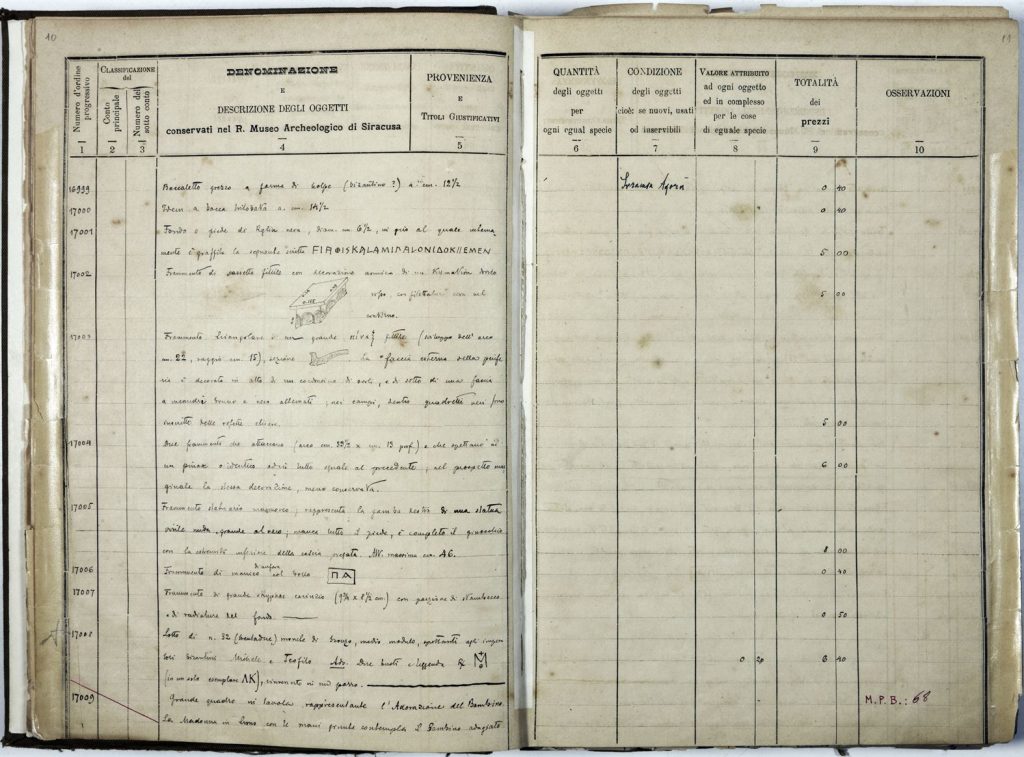 10
Numero d'ordine progressivo
CLASSIFICAZIONE del
Conto principale
Numero del sotto conto
DENOMINAZIONE
E
DESCRIZIONE DEGLI OGGETTI
conservati nel R. Museo Archeologico di Siracusa
PROVENIENZA
E
TITOLI GIUSTIFICATIVI
1 2 3 4 5
16999 Boccaletto grezzo a forma di (bizantino ?) a. cm. 12½
17000 Idem a bocca trilobata a. cm. 14½
17001 Fondo o piede di nera, diam. cm 6½, in giro al quale
mente è graffita la seguente
17002 Frammento di fittile con decorazione di un
con nel
17003 Frammento triangolare di un grande fittile (sviluppo dell' arco
cm. 22, raggio cm. 15), sezione la faccia esterna della
è decorata in alto di un cordoncino di , e di sotto di una fascia
a meandri bruno e nero alternati; nei campi, dentro quadretti neri sono
delle chiare.
17004 Due frammenti che attaccano (arco cm. 33½ x cm. 13 prof.) e che spettano ad
un pinax o identico od in tutto eguale al precedente; nel prospetto
ginale la stessa decorazione, meno conservata.
17005 Frammento statuario marmoreo; rappresenta la gamba destra di una statua
virile nuda, grande al vero; manca tutto il piede, è completo il ginocchio
con la estremità inferiore della coscia Alt. massima cm. 46.
17006 Frammento di manico d'anfora col bollo ΠΑ
17007 Frammento di grande skyphos corinzio (9¾ x 8½ cm.) con porzione di stambecco
e di radiature del fondo.
17008 Lotto di n. 32 (trentadue) monete di bronzo, medio modulo, spettanti agli impera
tori bizantini Michele e Teofilo Adv. Due busti e leggenda M
(in un solo esemplare ΛΚ), rinvenute in un pozzo.
17009 Grande quadro in tavola rappresentante l'Adorazione del Bambino.
La Madonna in trono con le mani giunte contempla il Bambino adagiato
11
QUANTITÀ
degli oggetti
per
ogni egual specie
CONDIZIONE
degli oggetti
cioè: se nuovi, usati
od inservibili
VALORE ATTRIBUITO
ad ogni oggetto
ed in complesso
per le cose
di eguale specie
TOTALITÀ
dei
prezzi
OSSERVAZIONI
6 7 8 9 10
Siracusa Agorà 0 40
0 40
5 00
5 00
5 00
6 00
8 00
0 40
0 50
0 20 6 40
M. P. B.: 68